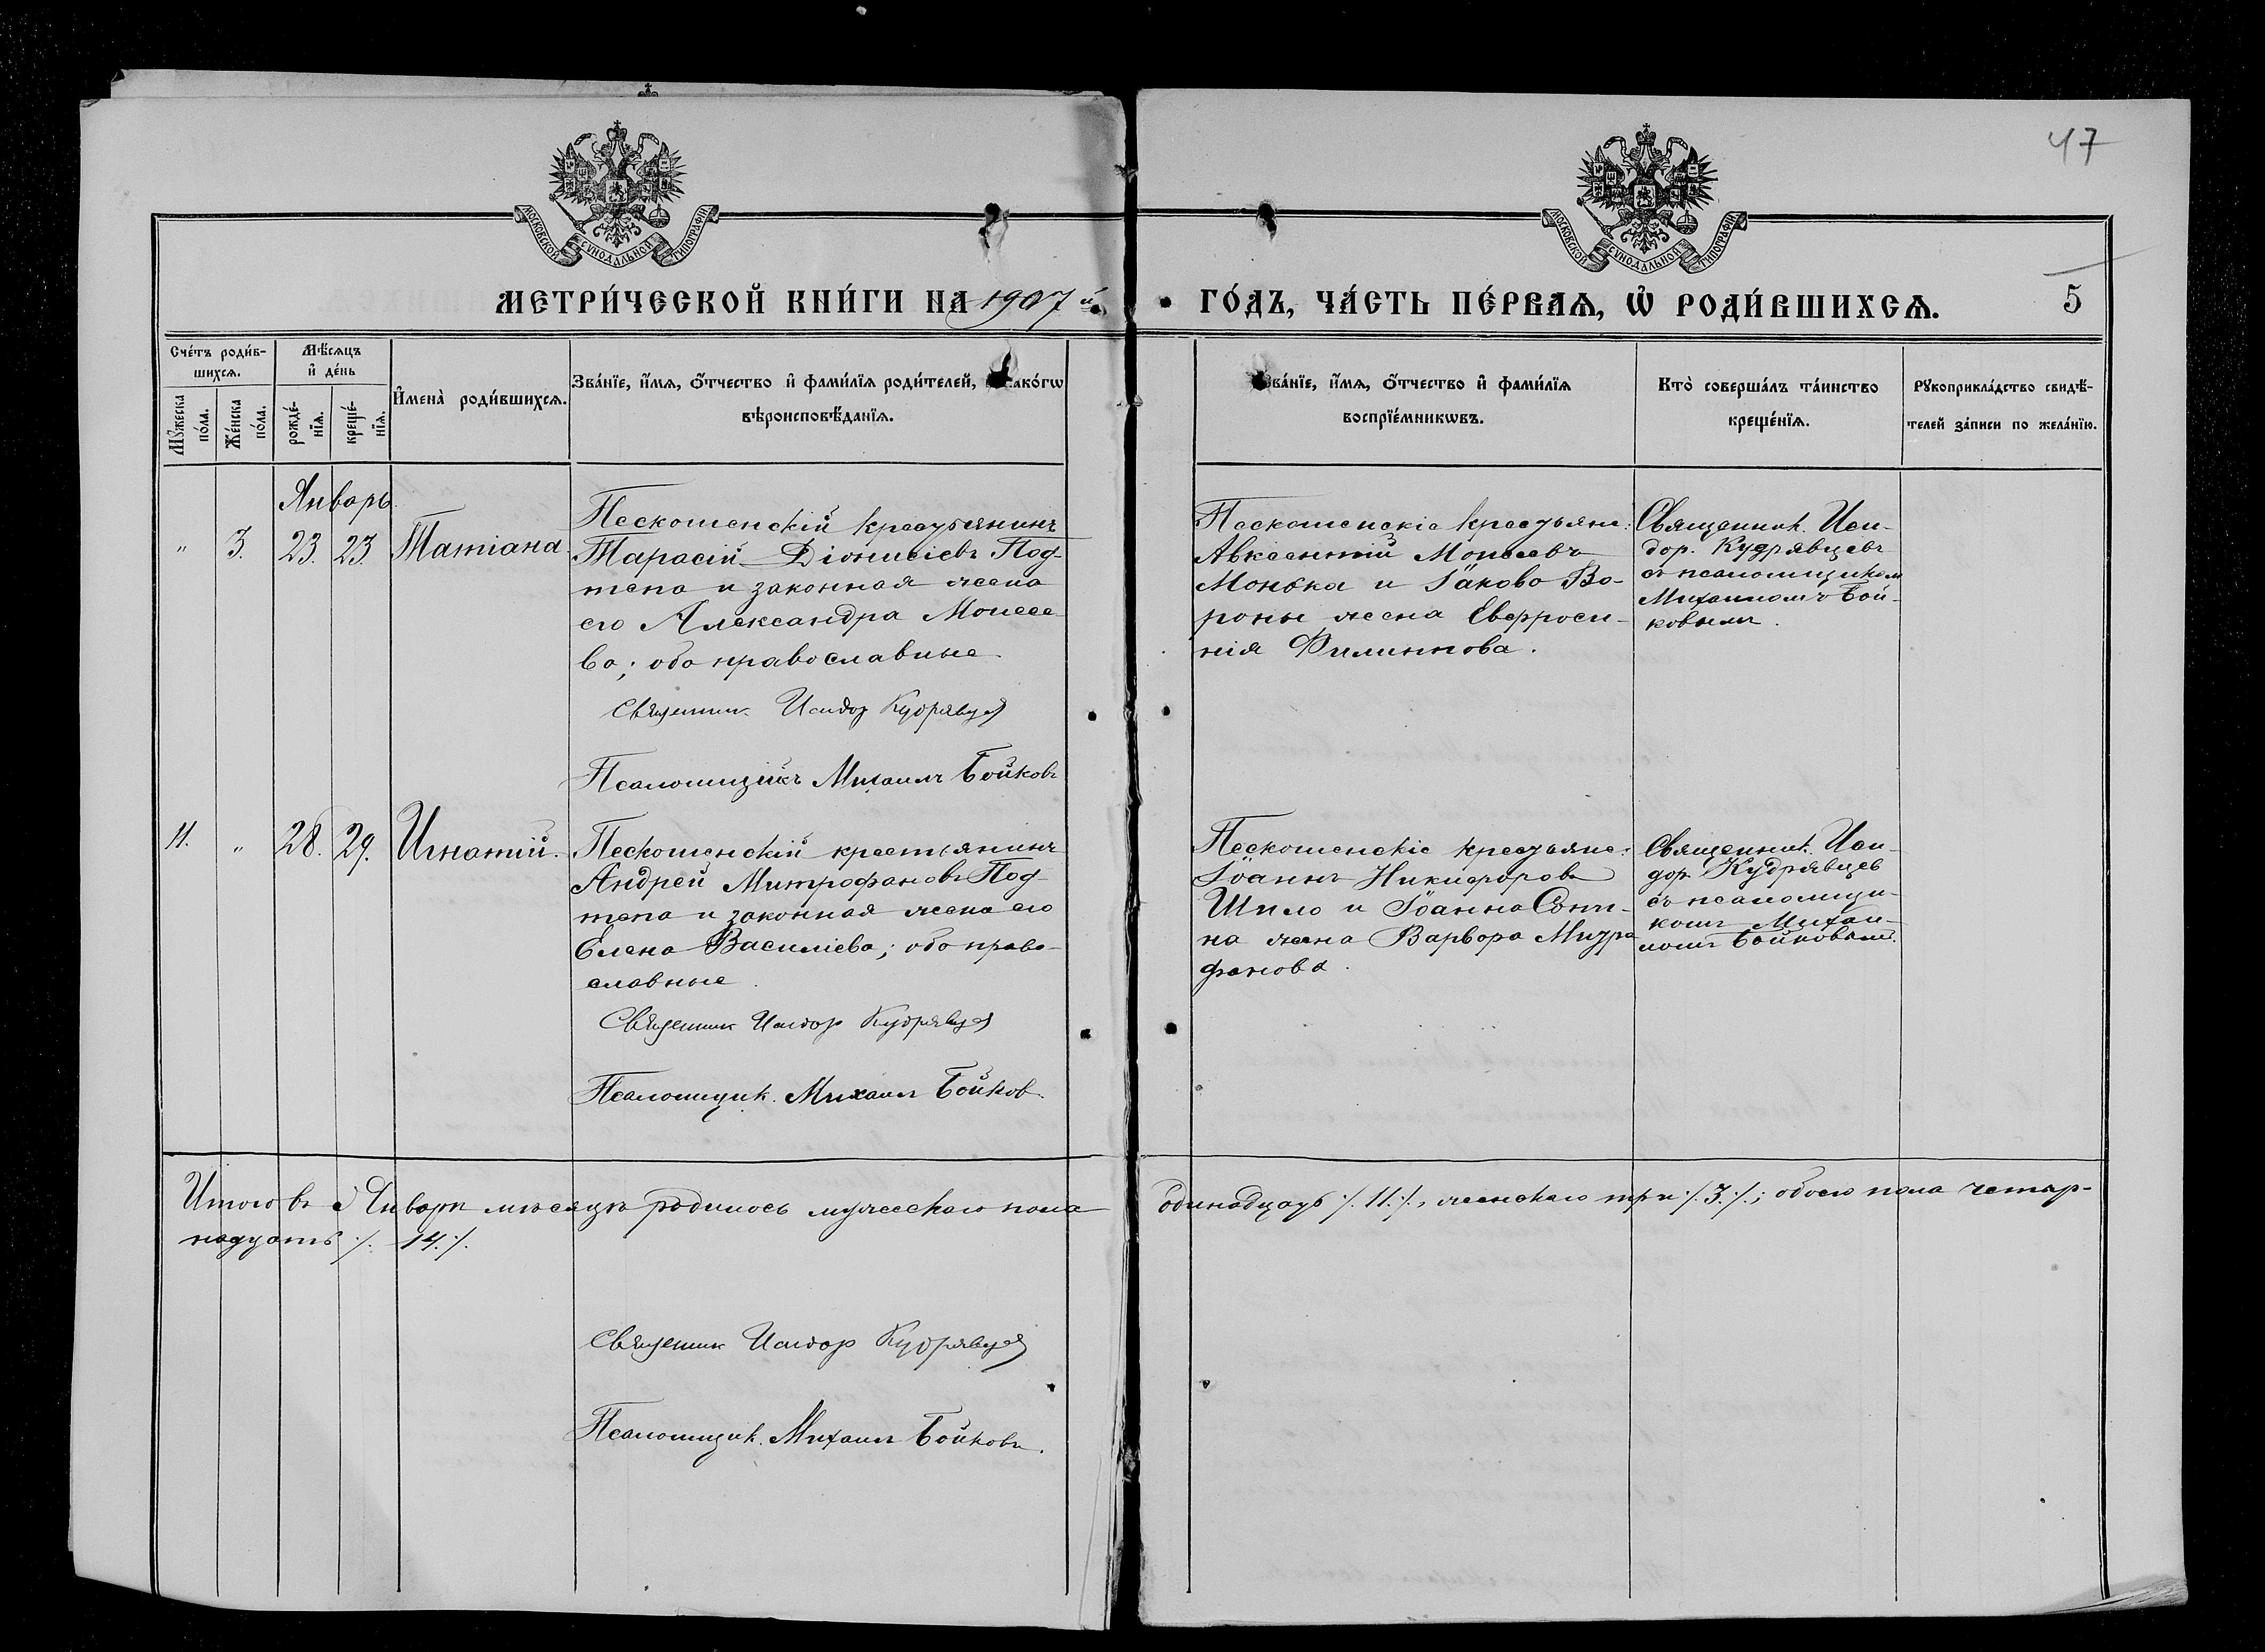 47
МОСКОВСКОЙ СУНОДАЛЬНОЙ ТИПОГРАФІИ
МОСКОВСКОЙ СУНОДАЛЬНОЙ ТИПОГРАФІИ
МЕТРИ́ЧЕСКОЙ КНИ́ГИ НА 1907 й
ГО́ДЪ, ЧА́СТЬ ПЕ́РВАѦ, Ѡ РОДИ́ВШИХСѦ.
5
Сче́тъ роди́в-
шихсѧ.
Мѣ́сѧцъ
и҆ де́нь
Мꙋ́жеска
по́ла.
Же́нска
по́ла.
рожде́-
нїѧ.
креще́-
нїѧ.
И҆мена̀ роди́вшихсѧ.
Зва́нїе, и҆́мѧ, ѻ҆́тчество и҆ фами́лїѧ роди́телей,
вѣроисповѣ́данїѧ.
Зва́нїе, и҆́мѧ, ѻ҆́тчество и҆ фами́лїѧ
воспрїе́мникѡвъ.
Кто̀ соверша́лъ та́инство
креще́нїѧ.
Рꙋкоприкла́дство свидѣ́-
телей за́писи по жела́нїю.
Январь
" 3. 23. 23. Татіана.
Пескошенскій крестьянинъ
Тарасій Діонисіевъ Под-
тепа и законная жена
его Александра Моисее-
ва; оба православные.
Священник Исидор Кудрявцев
Псаломщикъ Михаилъ Бойковъ
Пескошенскіе крестьяне:
Авксентій Моисеевъ
Монька и Іакова Во-
роны жена Евфроси-
нія Филиппова.
Священник. Иси-
дор. Кудрявцевъ
съ псаломщиком
Михаиломъ Бой-
ковымъ.
11. " 28. 29. Игнатій.
Пескошенскій крестьянинъ
Андрей Митрофановъ Под-
тепа и законная жена его
Елена Василіева; оба право-
славные.
Священник Исидор Кудрявцев
Псаломщик. Михаил Бойков.
Пескошенскіе крестьяне:
Іоаннъ Никифоровъ
Шило и Іоанна
на жена Варвара Митро
фанова.
Священник. Иси-
дор. Кудрявцев
съ псаломщи-
комъ Михаи-
ломъ Бойковымъ.
Итого въ Январѣ мѣсяцѣ родилось мужескаго пола одинадцать ·/. 11. /., женскаго три ·/. 3. /.; обоего пола четыр-
надцать ·/. 14. /.
Священник Исидор Кудрявцев
Псаломщик. Михаил Бойковъ.